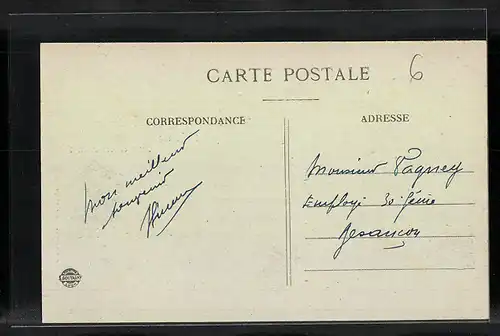 6
CARTE POSTALE
CORRESPONDANCE
ADRESSE
Mon meilleur
souvenir
Monsieur Pagney
Employé 3e Génie
Besançon